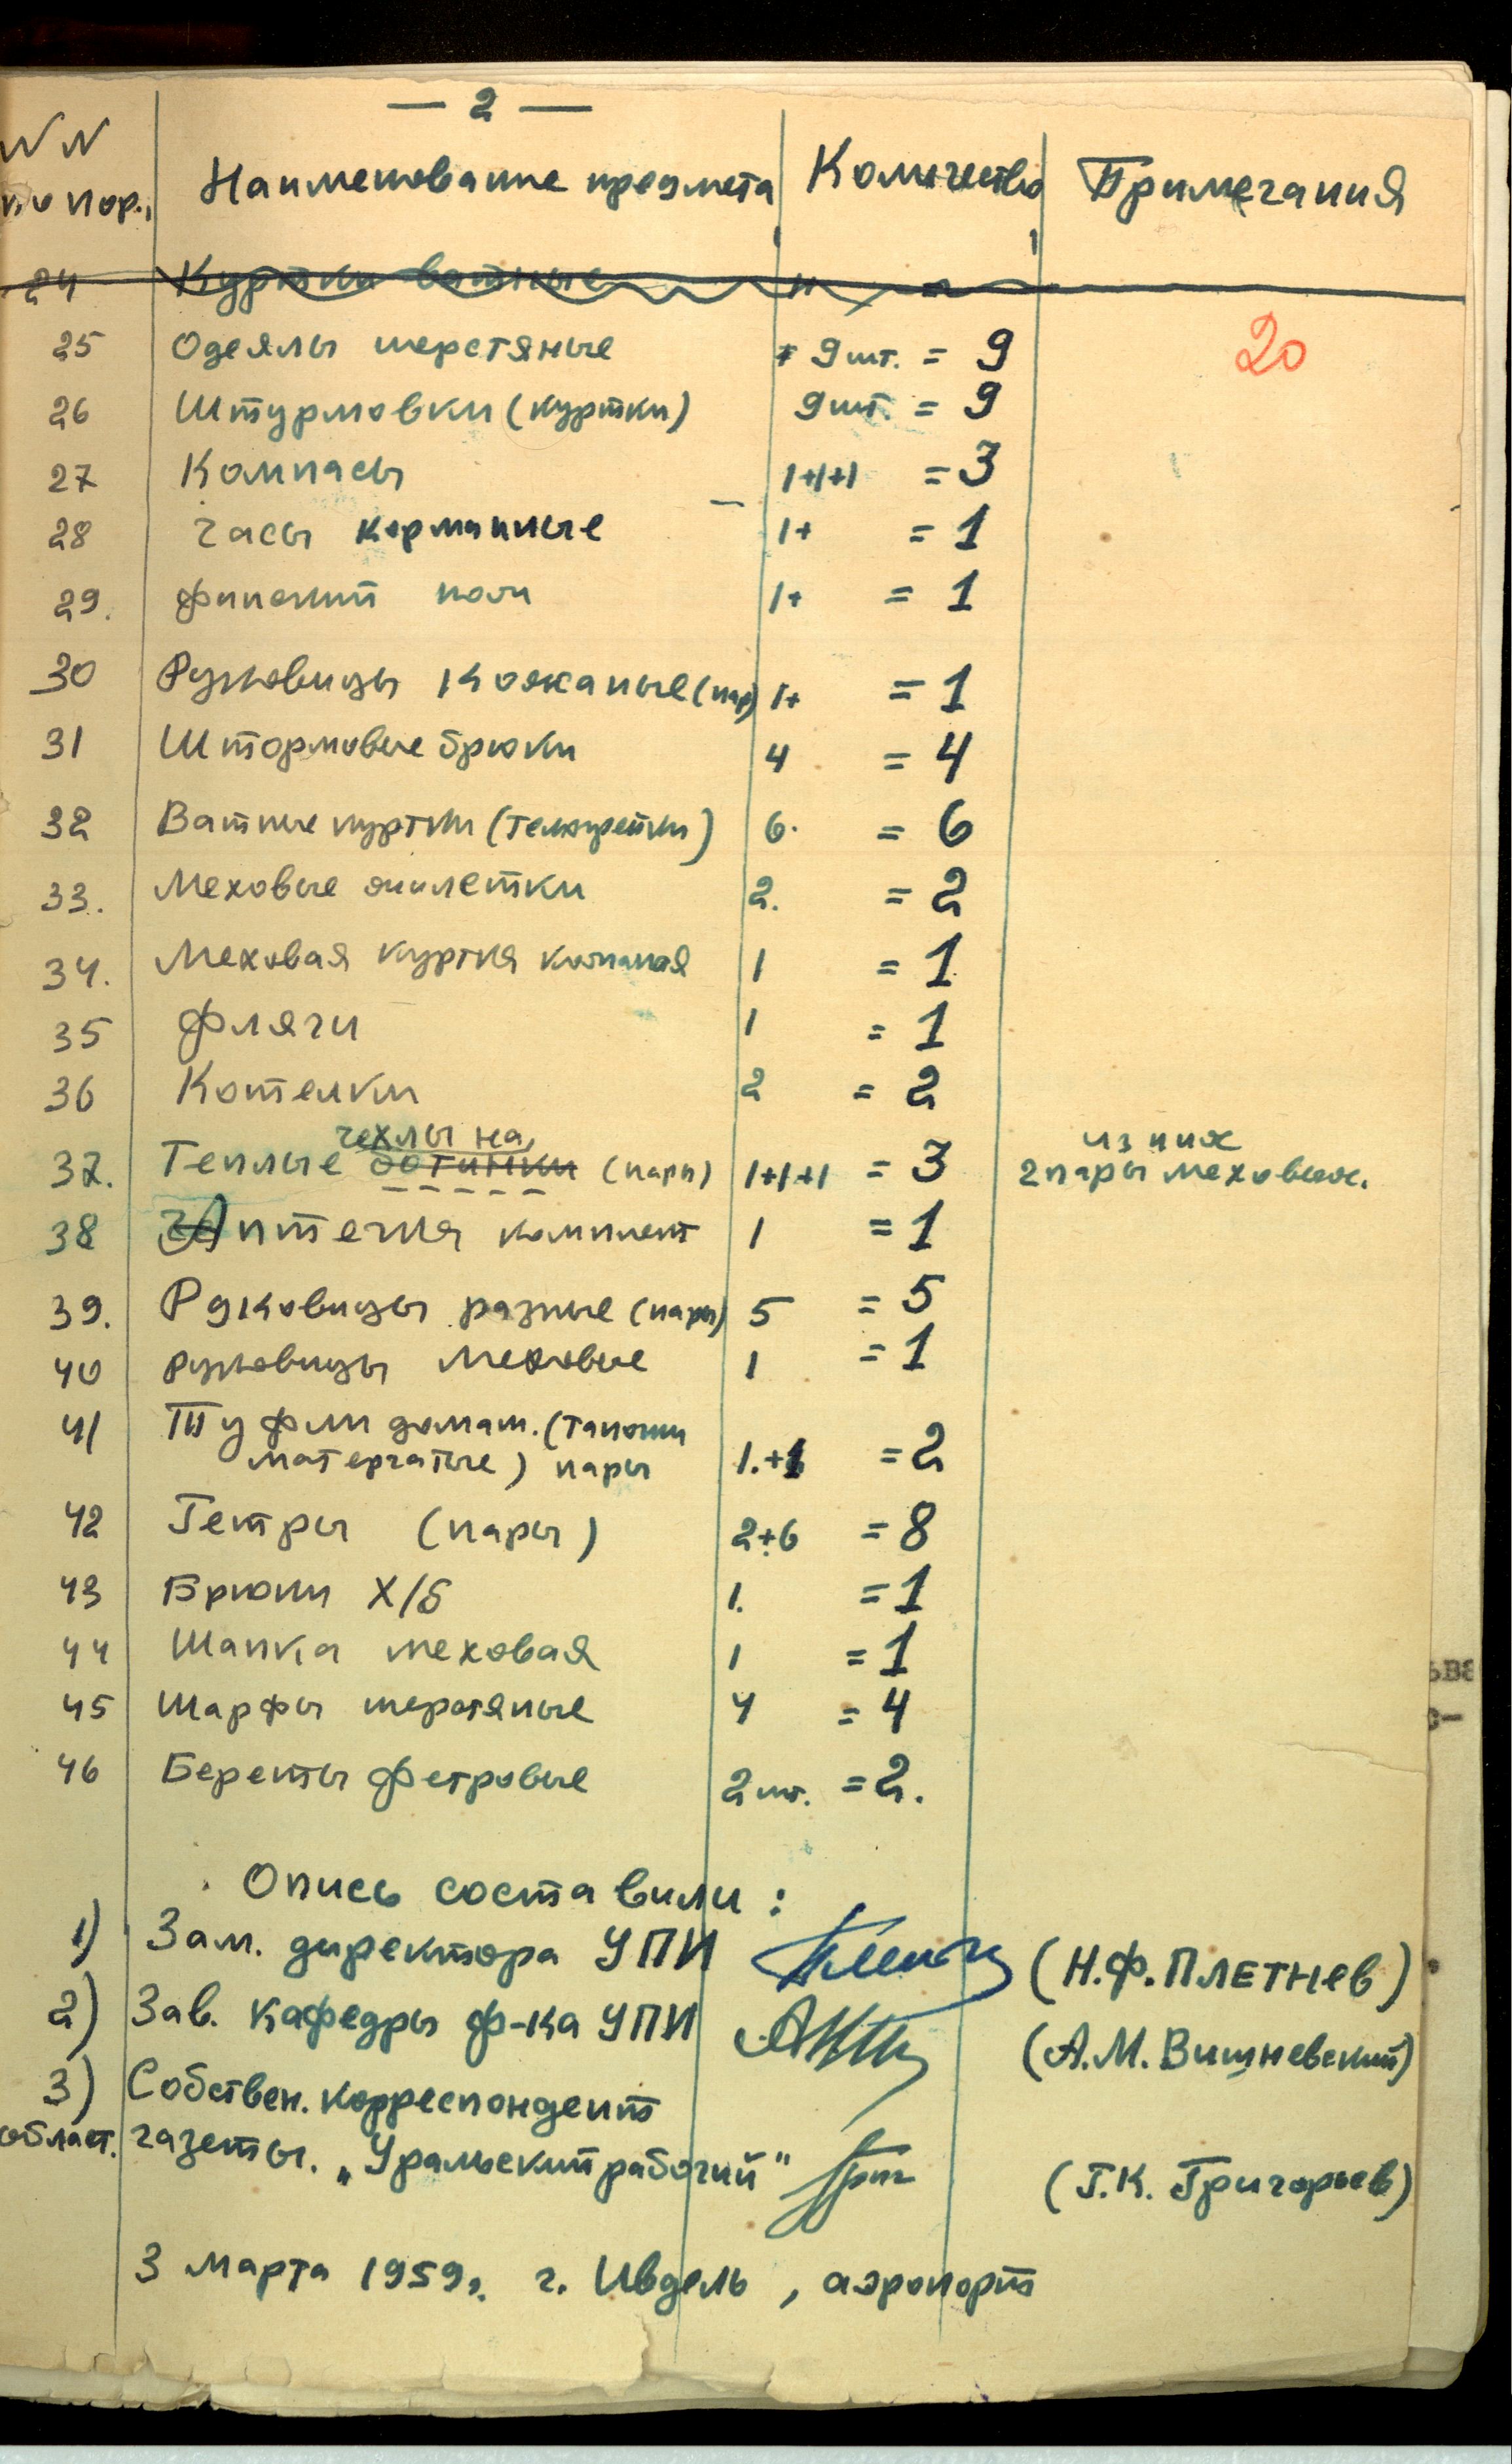 — 2 —
NN по пор. Наименование предмета Количество Примечания
24 Куртки ватные
25 Одеялы шерстяные 9 шт. = 9 20
26 Штурмовки (куртки) 9 шт. = 9
27 Компасы 1+1+1 = 3
28 Часы карманные 1+ = 1
29. финский нож 1+ = 1
30 Руковицы кожаные (пар) 1+ = 1
31 Штормовые брюки 4 = 4
32 Ватные куртки (телогрейки) 6. = 6
33. Меховые жилетки 2. = 2
34. Меховая куртка кожаная 1 = 1
35 Фляги 1 = 1
36 Котелки 2 = 2
чехлы на из них
37. Теплые ботинки (пары) 1+1+1 = 3 2 пары меховых.
38 Аптечка комплект 1 = 1
39. Руковицы разные (пары) 5 = 5
40 руковицы меховые 1 = 1
41 Туфли домаш. (тапочки
матерчатые) пары 1.+1 = 2
42 Гетры (пары) 2+6 = 8
43 Брюки х/б 1. = 1
44 Шапка меховая 1 = 1
45 Шарфы шерстяные 4 = 4
46 Береты фетровые 2 шт. = 2.
Опись составили:
1) Зам. директора УПИ (Н.Ф. Плетнев)
2) Зав. кафедры ф-ка УПИ (А.М. Вишневский)
3) Собствен. корреспондент
област. газеты. „Уральский рабочий" (Г.К. Григорьев)
3 марта 1959г. г. Ивдель, аэропорт